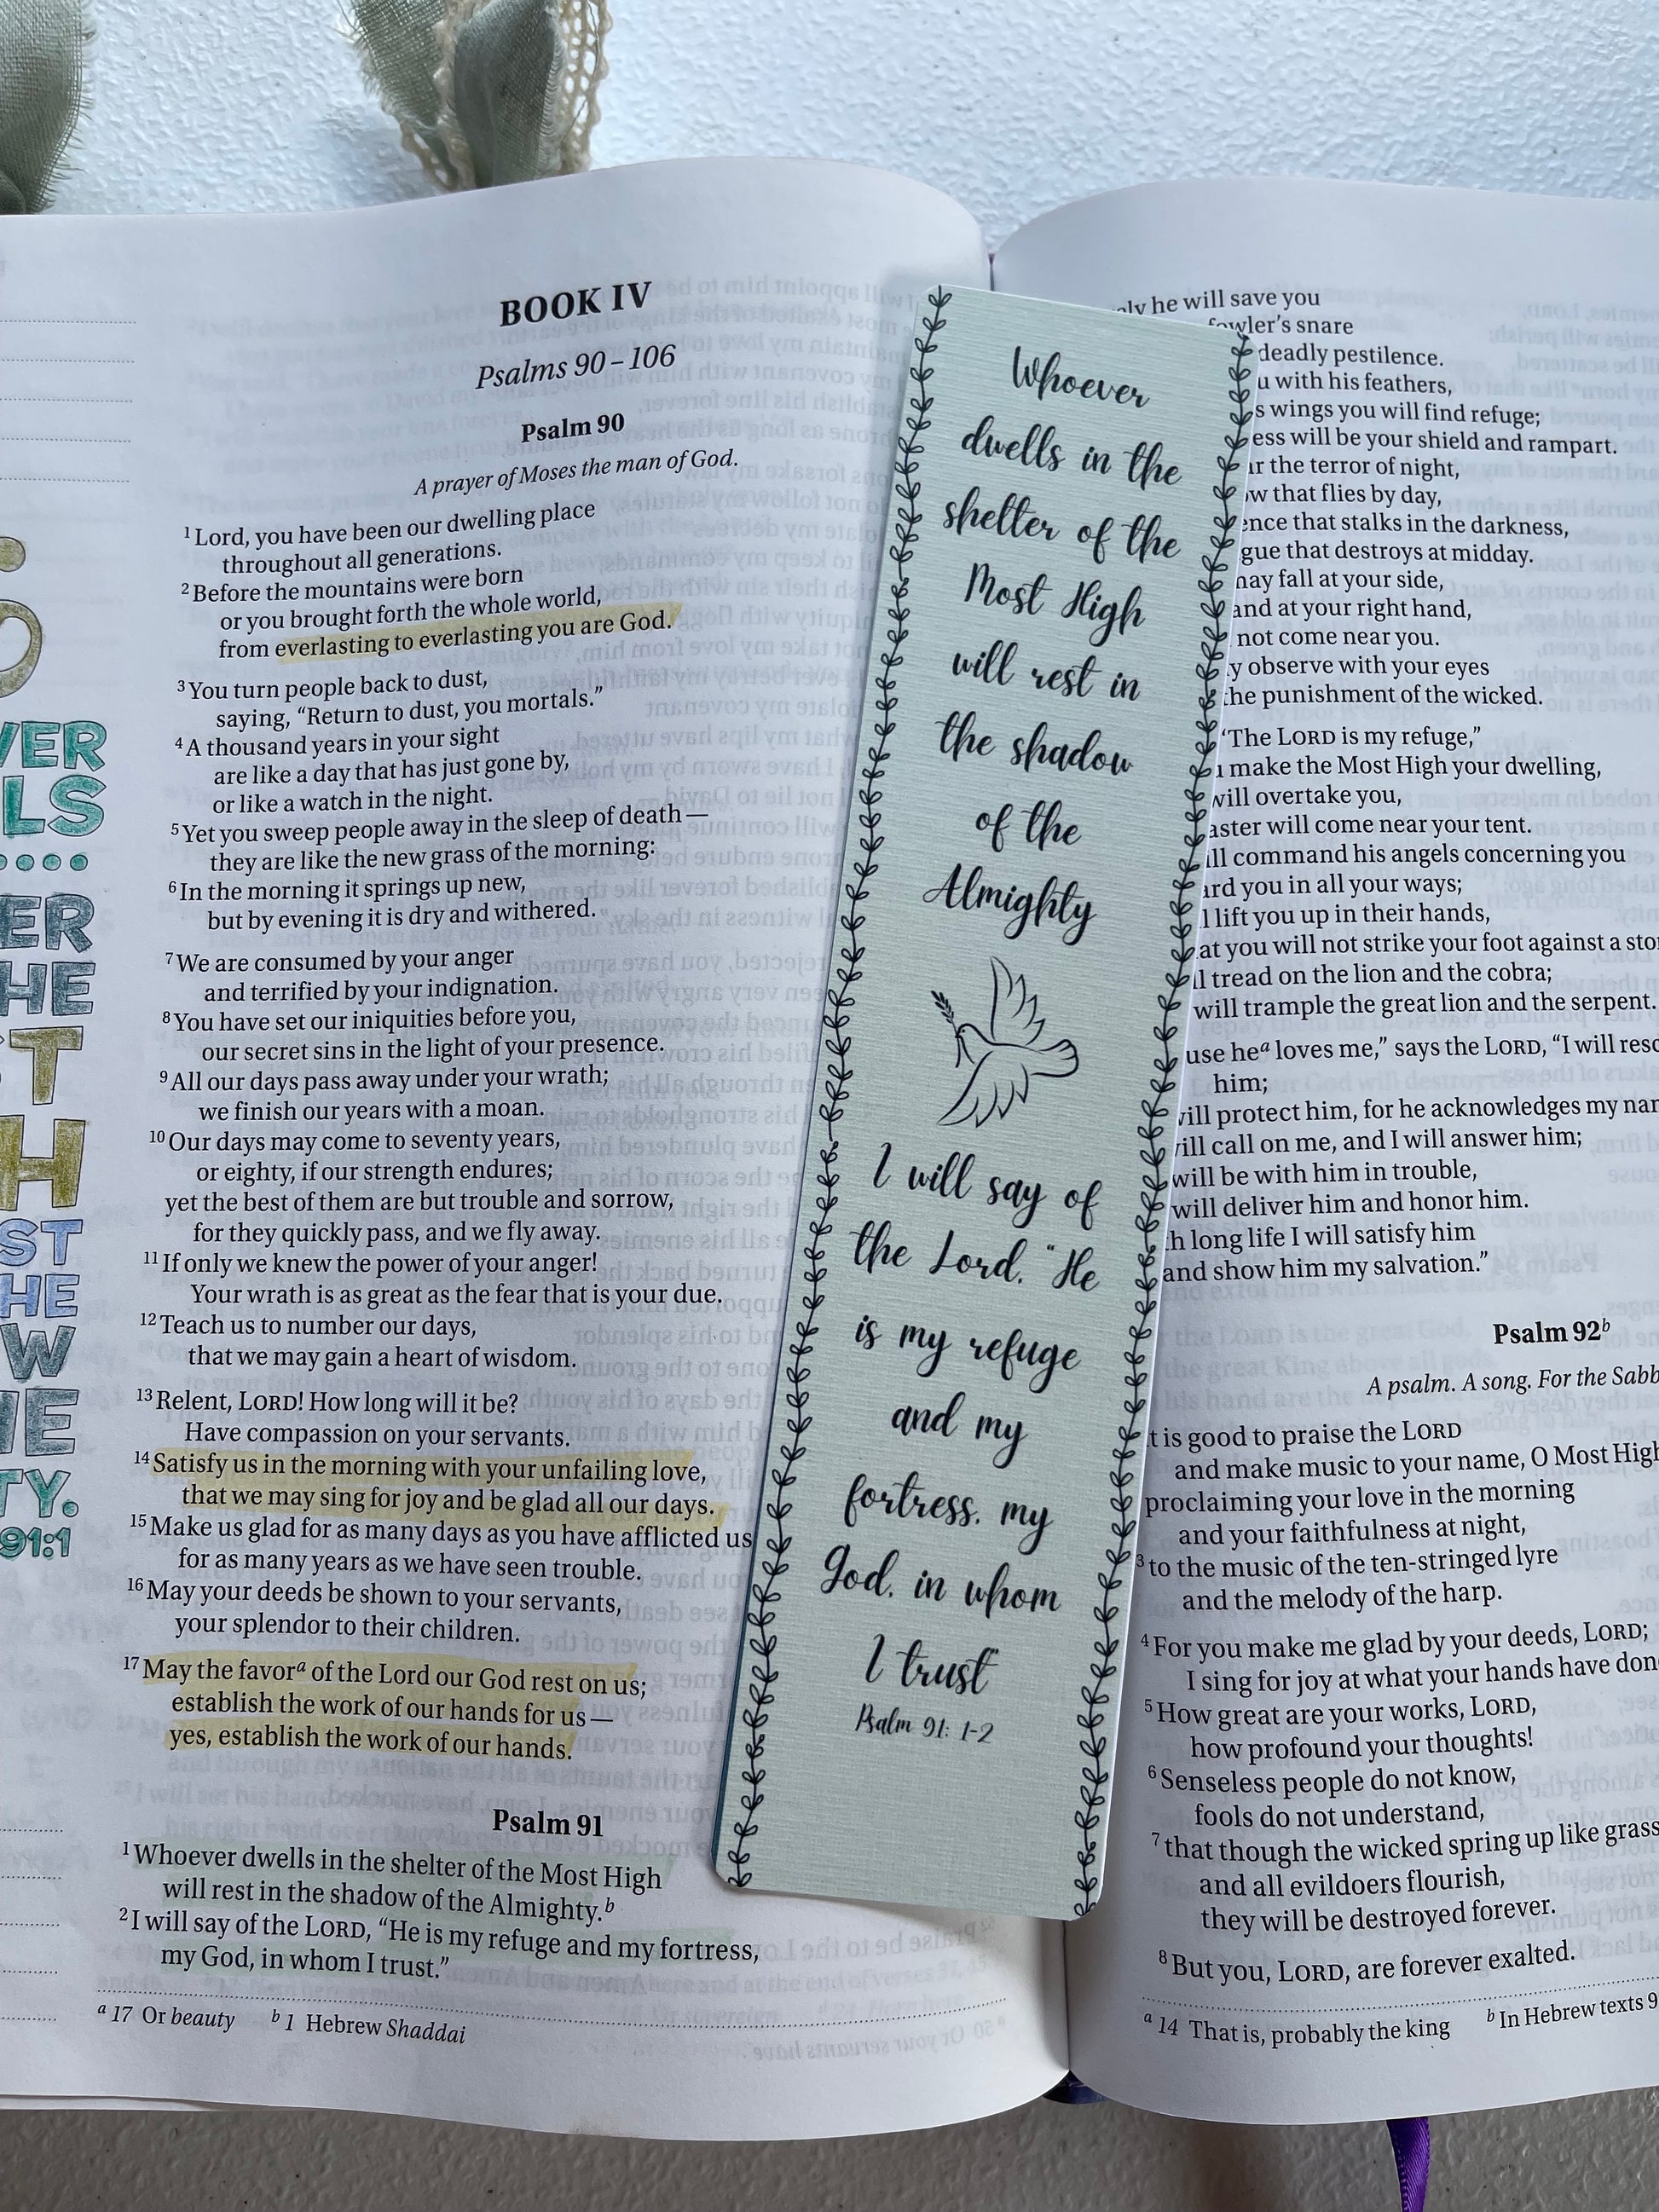 VER
LS
ER
HE
ST
HE
W
NE
TY.
91:1
BOOK IV
Psalms 90–106
Psalm 90
A prayer of Moses the man of God.
1 Lord, you have been our dwelling place
throughout all generations.
2 Before the mountains were born
or you brought forth the whole world,
from everlasting to everlasting you are God.
3 You turn people back to dust,
saying, “Return to dust, you mortals.”
4 A thousand years in your sight
are like a day that has just gone by,
or like a watch in the night.
5 Yet you sweep people away in the sleep of death—
they are like the new grass of the morning:
6 In the morning it springs up new,
but by evening it is dry and withered.
7 We are consumed by your anger
and terrified by your indignation.
8 You have set our iniquities before you,
our secret sins in the light of your presence.
9 All our days pass away under your wrath;
we finish our years with a moan.
10 Our days may come to seventy years,
or eighty, if our strength endures;
yet the best of them are but trouble and sorrow,
for they quickly pass, and we fly away.
11 If only we knew the power of your anger!
Your wrath is as great as the fear that is your due.
12 Teach us to number our days,
that we may gain a heart of wisdom.
13 Relent, LORD! How long will it be?
Have compassion on your servants.
14 Satisfy us in the morning with your unfailing love,
that we may sing for joy and be glad all our days.
15 Make us glad for as many days as you have afflicted us
for as many years as we have seen trouble.
16 May your deeds be shown to your servants,
your splendor to their children.
17 May the favor a of the Lord our God rest on us;
establish the work of our hands for us—
yes, establish the work of our hands.
Psalm 91
1 Whoever dwells in the shelter of the Most High
will rest in the shadow of the Almighty. b
2 I will say of the LORD, “He is my refuge and my fortress,
my God, in whom I trust.”
a 17 Or beauty b 1 Hebrew Shaddai
Whoever
dwells in the
shelter of the
Most High
will rest in
the shadow
of the
Almighty
I will say of
the Lord, "He
is my refuge
and my
fortress, my
God, in whom
I trust"
Psalm 91: 1-2
he will save you
fowler’s snare
deadly pestilence.
u with his feathers,
s wings you will find refuge;
ess will be your shield and rampart.
the terror of night,
w that flies by day,
ence that stalks in the darkness,
gue that destroys at midday.
may fall at your side,
and at your right hand,
not come near you.
y observe with your eyes
the punishment of the wicked.
“The LORD is my refuge,”
make the Most High your dwelling,
will overtake you,
aster will come near your tent.
ll command his angels concerning you
ard you in all your ways;
l lift you up in their hands,
at you will not strike your foot against a sto
l tread on the lion and the cobra;
will trample the great lion and the serpent.
use he a loves me,” says the LORD, “I will resc
him;
will protect him, for he acknowledges my nam
will call on me, and I will answer him;
will be with him in trouble,
will deliver him and honor him.
h long life I will satisfy him
and show him my salvation.”
Psalm 92 b
A psalm. A song. For the Sabb
t is good to praise the LORD
and make music to your name, O Most High
proclaiming your love in the morning
and your faithfulness at night,
3 to the music of the ten-stringed lyre
and the melody of the harp.
4 For you make me glad by your deeds, LORD;
I sing for joy at what your hands have don
5 How great are your works, LORD,
how profound your thoughts!
6 Senseless people do not know,
fools do not understand,
7 that though the wicked spring up like grass
and all evildoers flourish,
they will be destroyed forever.
8 But you, LORD, are forever exalted.
a 14 That is, probably the king b In Hebrew texts 9